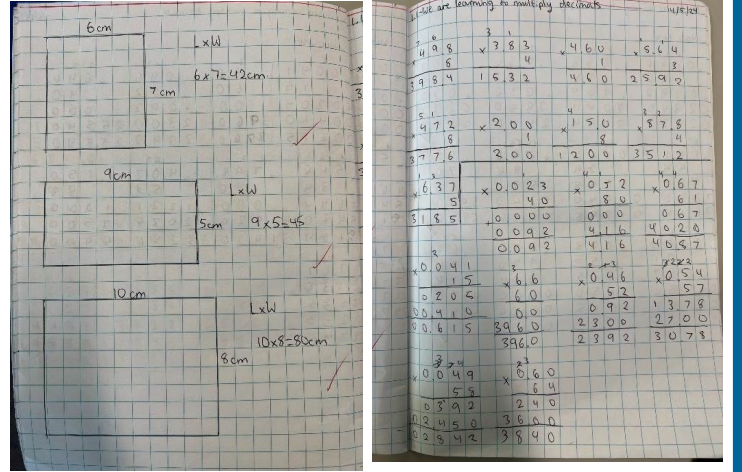 6cm
LxW
6x7=42cm
7cm
9cm
LxW
5cm
9x5=45
10cm
LxW
10x8=80cm
8cm
L.I-We are learning to multiply decimals
14/5/24
498
x 8
3984
383
x 4
1532
460
x 1
460
5.64
x 3
472
x 8
3776
200
x 1
200
150
x 8
1200
878
x 4
3512
637
x 5
3185
0.023
x 40
0000
0092
0092
052
x 80
000
416
416
0.67
x 61
067
4020
4087
0.041
x 15
0205
00410
00615
66
x 60
00
3960
396.0
046
x 52
092
2300
2392
054
x 57
1378
2700
3078
0.049
x 58
0392
02450
02842
0.60
x 64
240
3600
3840